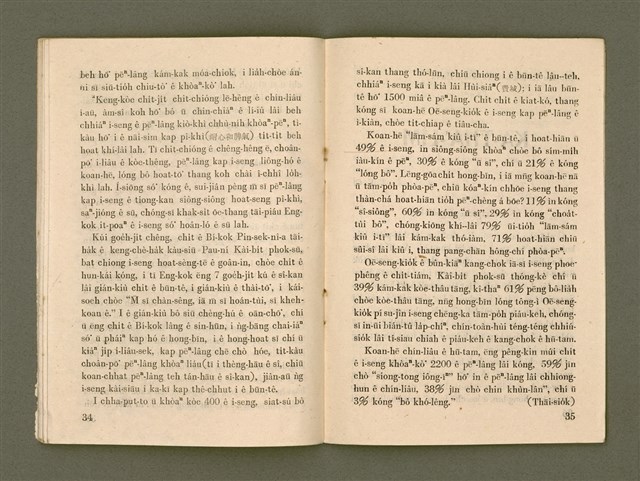 beh hó͘ pēⁿ-lâng kám-kak móa-chiok, i liah-chòe án-
ni sī siū-tio̍h chiu-tó͘ ê khòaⁿ-kò͘ lah.
"Keng-kòe chit-ji̍t chit-chióng lē-hêng ê chín-liâu
í-āu, àm-sî koh hō͘ bô ū chìn-chiàⁿ ê lī-ūi lâi beh
chhiáⁿ i-seng ê pēⁿ-lâng kiò-khí chhù-nih khòaⁿ-pēⁿ, tì-
kàu hō͘ i ê nāi-sim kap pî-khì(耐心和脾氣) tit-tit beh
hoat khí-lâi lah. Tī chit-chióng ê chêng-hêng ê, choân-
pō͘ i-liâu ê kòe-thêng, pēⁿ-lâng kap i-seng lióng-hó ê
koan-hē, lóng bô hoat-tō͘ thang koh chài î-chhî lo̍h-
khì lah. Í-siōng só͘ kóng, sui-jiân pèng m̄ sī pēⁿ-lâng
kap i-seng ê tiong-kan siông-siông hoat-seng pî-khì,
saⁿ-jióng ê sū, chóng-sī khak-si̍t óe-thang tāi-piáu Eng-
kok it-poaⁿ ê i-seng só͘ hoân-ló ê sū lah.
Kúi goe̍h-ji̍t chêng, chi̍t ê Bí-kok Pin-sek-nī-a tāi-
ha̍k ê keng-chè-ha̍k kàu-siū Pau-nî Kái-bit phok-sū,
bat chiong i-seng hoat-sèng-tē ê goân-in, chòe chi̍t ê
hun-kái kóng, i tī Eng-kok ēng 7 goe̍h-ji̍t kú ê sî-kan
lâi gián-kiù chit ê būn-tê, i gián-kiù ê thāi-tō͘, i kái-
soeh chòe "M̄ sī chàn-sêng, iā m̄ sī hoán-tùi, sī kheh-
koan ê." I ê gián-kiù bô siū chèng-hú ê oān-chō͘, chí
ū eng chi̍t ê Bí-kok lâng ê sin-hūn, i ǹg-bāng chai-iáⁿ
só͘ ū pháiⁿ kap hó ê hong-bīn, i ê hong-hoat sī chí ū
kiâⁿ ji̍p i-liâu-sek, kap pēⁿ-lâng chē chò hóe, tit-kàu
choân-pō͘ pēⁿ-lâng khòaⁿ liáu(tī i thèng-hāu ê sî, chiū
koan-chhat pēⁿ-lâng teh tán-hāu ê sî-kan), jiân-āu ǹg
i-seng kài-siāu i ka-kī kap thê-chhut i ê būn-tê.
I chha-put-to ū khòaⁿ kòe 400 ê i-seng, siat-sú bô
34
sî-kan thang thó-lūn, chiū chiong i ê būn-tê lâu--teh,
chhiáⁿ i-seng kā i kià lâi Hùi-siâⁿ(費城); i iā lâu būn-
tê hō͘ 1500 miâ ê pēⁿ-lâng. Chit chi̍t ê kiat-kó, thang
kóng sī koan-hē Oē-seng-kio̍k ê i-seng kap pēⁿ-lâng ê
ì-kiàn, chòe ti̍t-chiap ê tiâu-cha.
Koan-hē "lām-sám kiû i-tī" ê būn-tê, i hoat-hiān ū
49% ê i-seng, in siông-siông khòaⁿ chòe bô sím-mi̍h
iàu-kín ê pēⁿ, 30% ê kóng "ū sî", chí ū 21% ê kóng
"lóng bô". Lēng-gōa chi̍t hong-bīn, i iā mn̄g koan-hē nā
ū tām-po̍h phòa-pēⁿ, chiū kóaⁿ-kín chhōe i-seng thang
thàn-chá hoat-hiān tio̍h pēⁿ-chêng á bōe? 11% ìn kóng
"sî-siông", 60% ìn kóng "ū sî", 29% ìn kóng "choa̍t-
tùi bô", chóng-kiōng khí-lâi 79% ùi-tio̍h "lām-sám
kiû i-tī" lâi kám-kak thó-iàm, 71% hoat-hiān chiū
sûi-sî lâi kiû i, thang pang-chān hông-chí phòa-pēⁿ.
Oē-seng-kio̍k ê būn-kiàⁿ kang-chok iā-sī i-seng phoe-
phêng ê chi̍t-tiám. Kái-bit phok-sū thóng-kè chí ū
39% kám-kak kòe-thâu tāng, kî-thaⁿ 61% pēng bô-liah
chòe kòe-thâu tāng, nn̄g hong-bīn lóng tông-ì Oē-seng-
kio̍k pī su-jîn i-seng chēng-ka tām-po̍h piáu-keh, chóng-
sī in-ūi biān-tû la̍p-chîⁿ, chin-toàn-hùi téng-téng chhiú-
sio̍k lâi tì-siau chiah ê piáu-keh ê kang-chok ê hū-tam.
Koan-hē chin-liâu ê hū-tam, ēng pêng-kin múi chi̍t
ê i-seng khòaⁿ-kò͘ 2200 ê pēⁿ-lâng lâi kóng, 59% jīn
chò "siong-tong iông-īⁿ" hō͘ in ê pēⁿ-lâng lâi chhiong-
hun ê chín-liâu, 38% jīn chò chin khùn-lân", chí ū
3% kóng "bô khó-lêng." (Thāi-sio̍k)
35